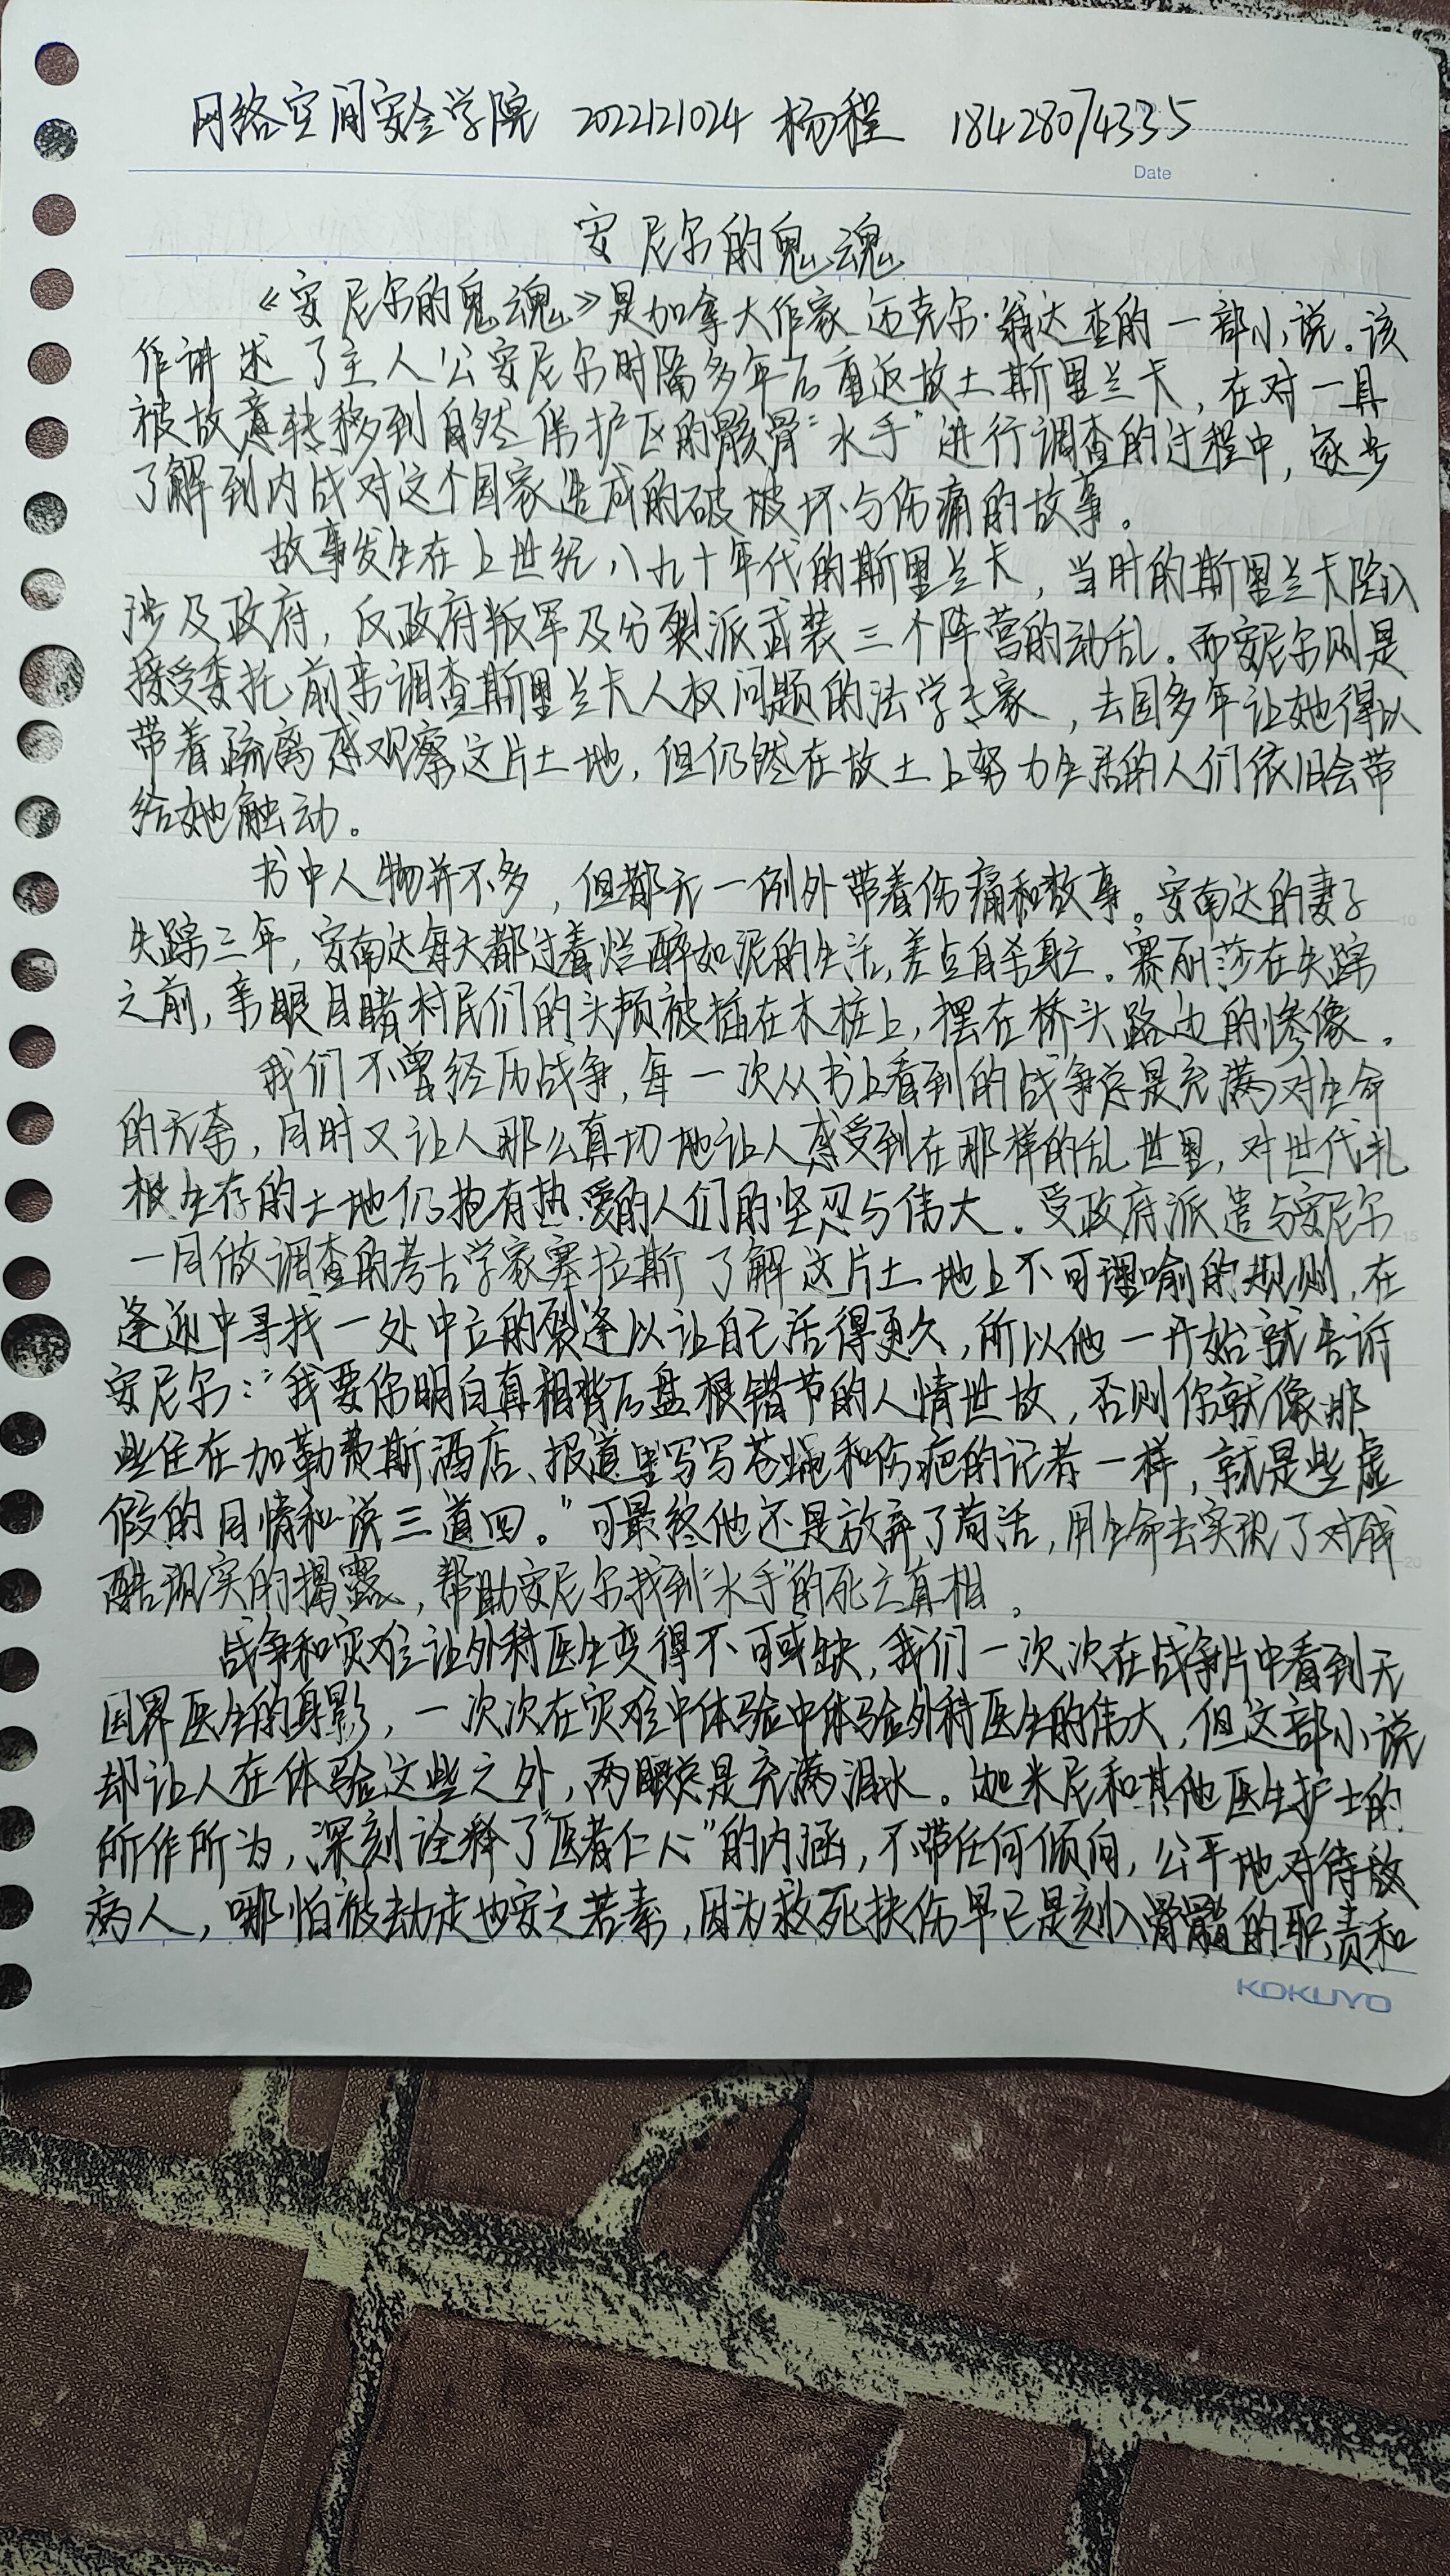 网络空间安全学院 2022121024 杨程 18428074335
No.
Date
安尼尔的鬼魂
《安尼尔的鬼魂》是加拿大作家迈克尔·翁达杰的一部小说。该
作讲述了主人公安尼尔时隔多年后重返故土斯里兰卡，在对一具
被故意转移到自然保护区的骸骨“水手”进行调查的过程中，逐步
了解到内战对这个国家造成的破坏与伤痛的故事。
故事发生在上世纪八九十年代的斯里兰卡，当时的斯里兰卡陷入
涉及政府，反政府叛军及分裂派武装三个阵营的动乱。而安尼尔则是
接受委托前来调查斯里兰卡人权问题的法学专家，去国多年让她得以
带着疏离感观察这片土地，但仍然在故土上努力生活的人们依旧会带
给她触动。
书中人物并不多，但都无一例外带着伤痛和故事。安南达的妻子
失踪三年，安南达每天都过着烂醉如泥的生活，差点自杀身亡。塞丽莎在失踪
之前，亲眼目睹村民们的头颅被插在木桩上，摆在桥头路边的惨像。
我们不曾经历战争，每一次从书上看到的战争总是充满对生命
的无奈，同时又让人那么真切地让人感受到在那样的乱世里，对世代扎
根生存的土地仍抱有热爱的人们的坚忍与伟大。受政府派遣与安尼尔
一同做调查的考古学家塞拉斯了解这片土地上不可理喻的规则，在
逢迎中寻找一处中立的裂逢以让自己活得更久，所以他一开始就告诉
安尼尔：“我要你明白真相背后盘根错节的人情世故，否则你就像那
些住在加勒费斯酒店、报道里写写苍蝇和伤疤的记者一样，就是些虚
假的同情和说三道四。”可最终他还是放弃了苟活，用生命去实现了对残
酷现实的揭露，帮助安尼尔找到“水手”的死亡真相。
战争和灾难让外科医生变得不可或缺，我们一次次在战争片中看到无
国界医生的身影，一次次在灾难中体验中体验外科医生的伟大，但这部小说
却让人在体验这些之外，两眼总是充满泪水。迦米尼和其他医生护士的
所作所为，深刻诠释了“医者仁心”的内涵，不带任何倾向，公平地对待放
病人，哪怕被劫走也安之若素，因为救死扶伤早已是刻入骨髓的职责和
10
15
20
KOKUYO